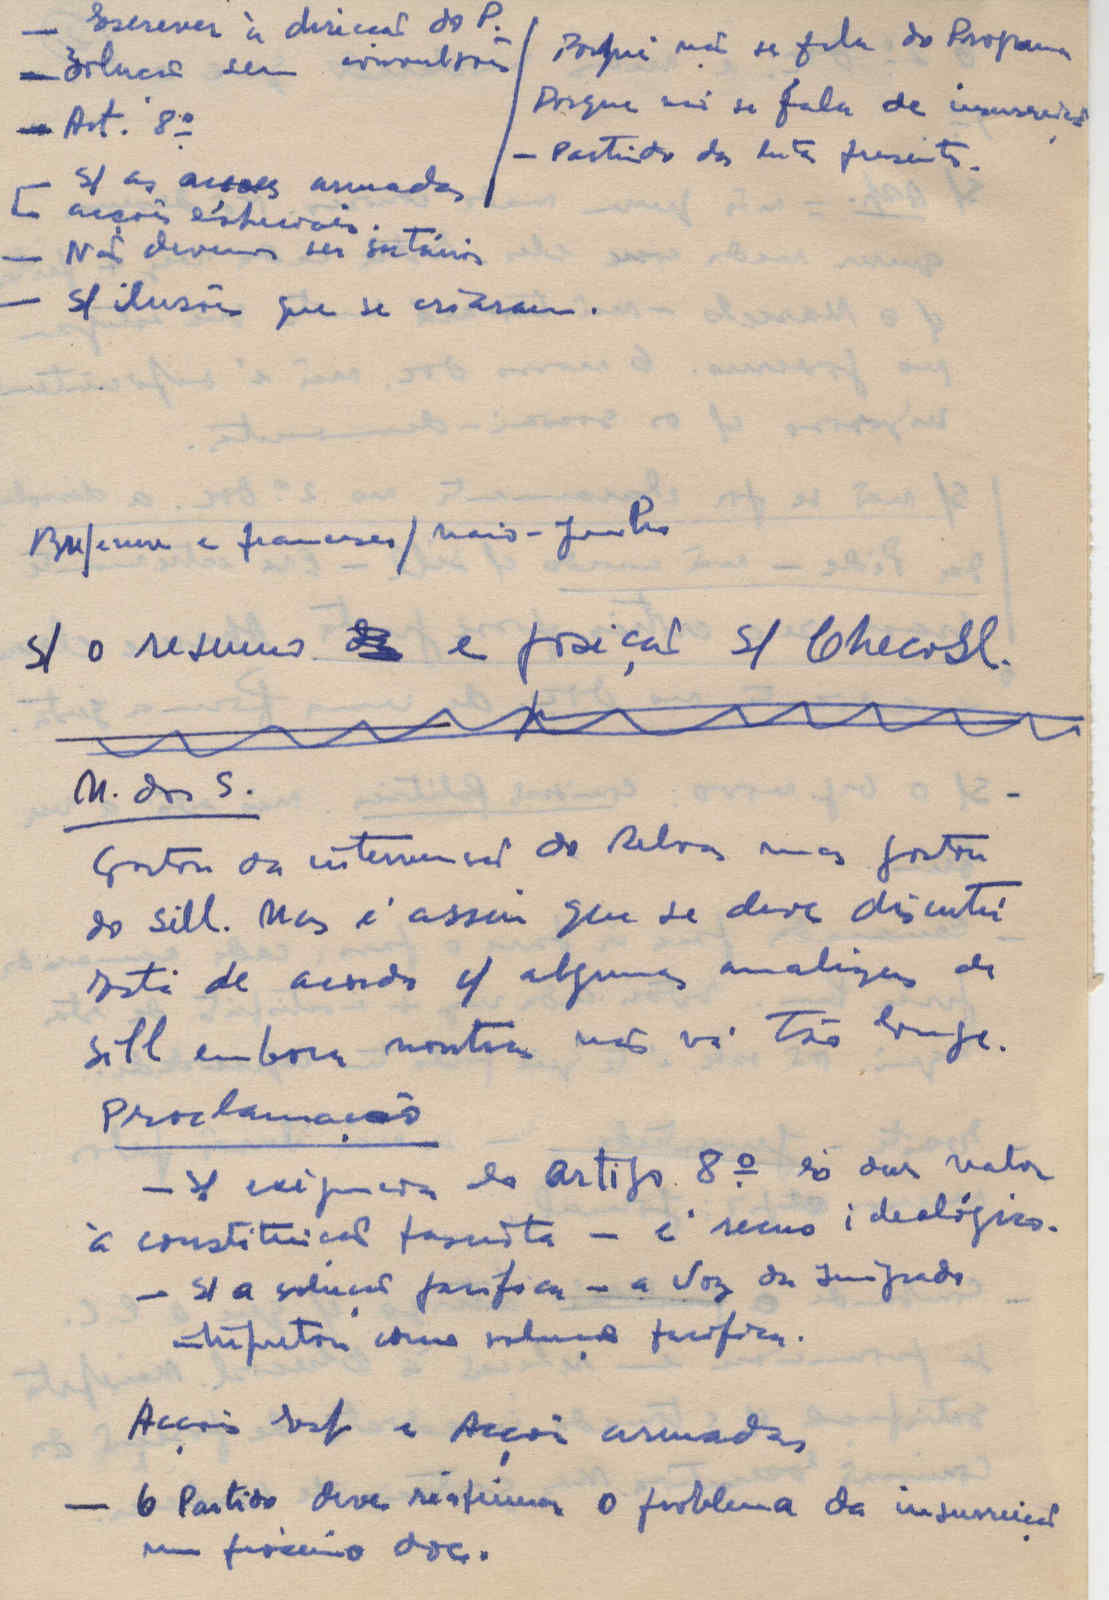 — Escrever à direcção do P.
— Solução sem convulsões
— Art. 8º
— S/ as acções armadas
acções especiais.
— Não devemos ser sectários
— S/ ilusões que se criaram.
Porque não se fala do Programa
Porque não se fala de insurreição
— Partido da luta presente.
e franceses / maio - junho
S/ o resumo e posição S/ Checosl.
M. dos S.
Gostou da intervenção do Relvas mas gostou
do Sill. Mas é assim que se deve discutir
Está de acordo c/ algumas analises de
Sill embora nontras não vá tão longe.
Proclamação
— S/ exigencia do artigo 8º só dar valor
à constituição fascista — é recuo ideológico.
— S/ a solução pacifica — a Voz do Imigrado
interpretou como solução pacifica.
Acções Esp e Acções armadas
— O Partido deve reafirmar o problema da insurreição
num próximo doc.